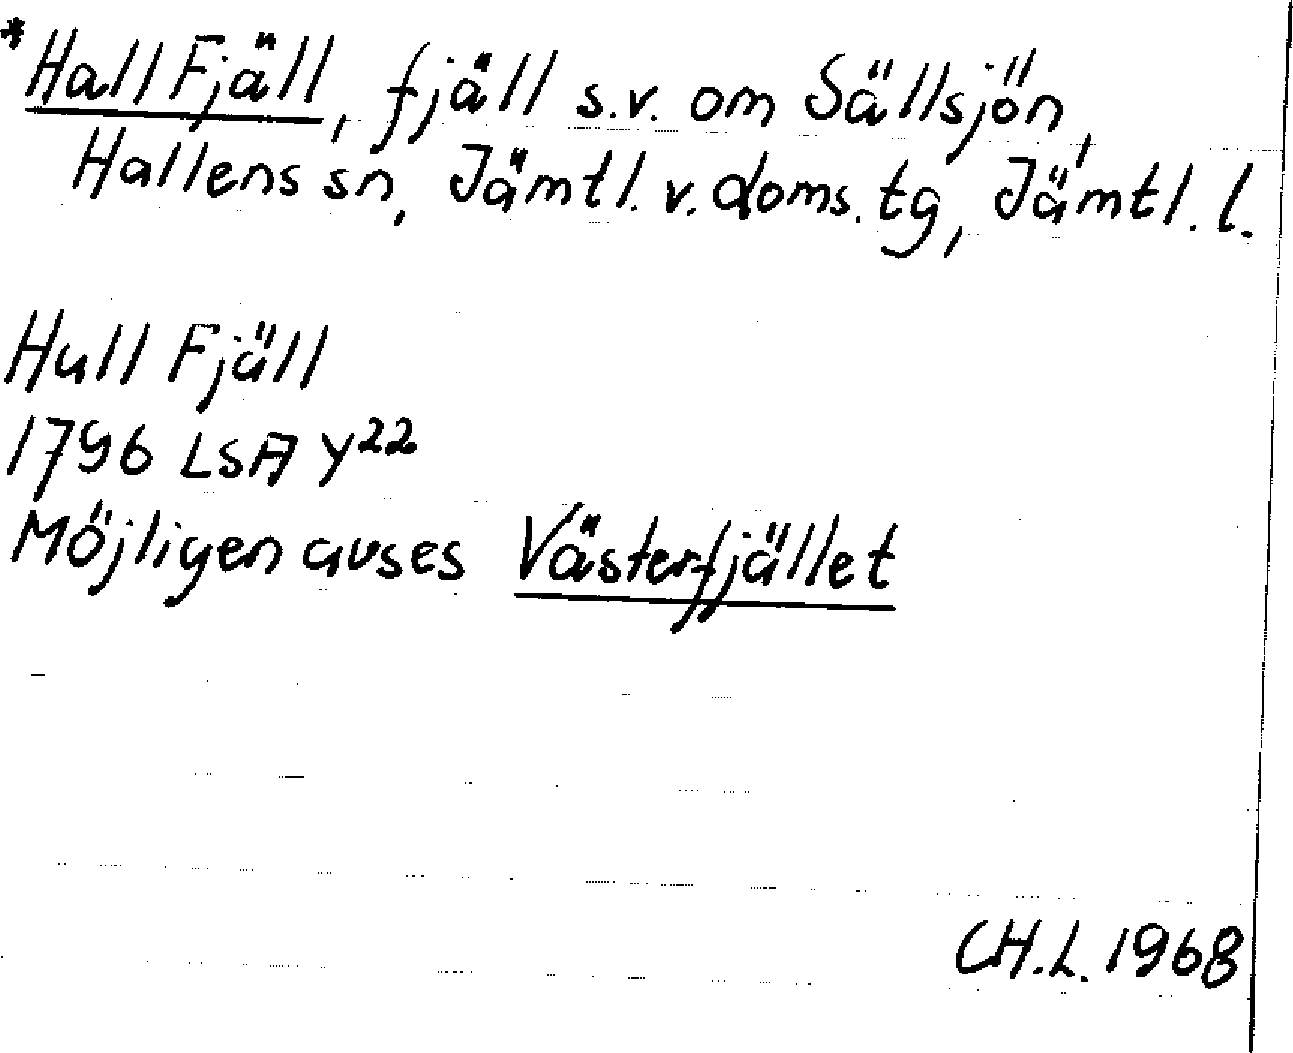 *Hall Fjäll, fjäll s.v. om Sällsjön,
Hallens sn, Jämtl. v. doms. tg, Jämtl. l.
Hull Fjäll
1796 LSA Y22
Möjligen avses Västerfjället
CH.L. 1968